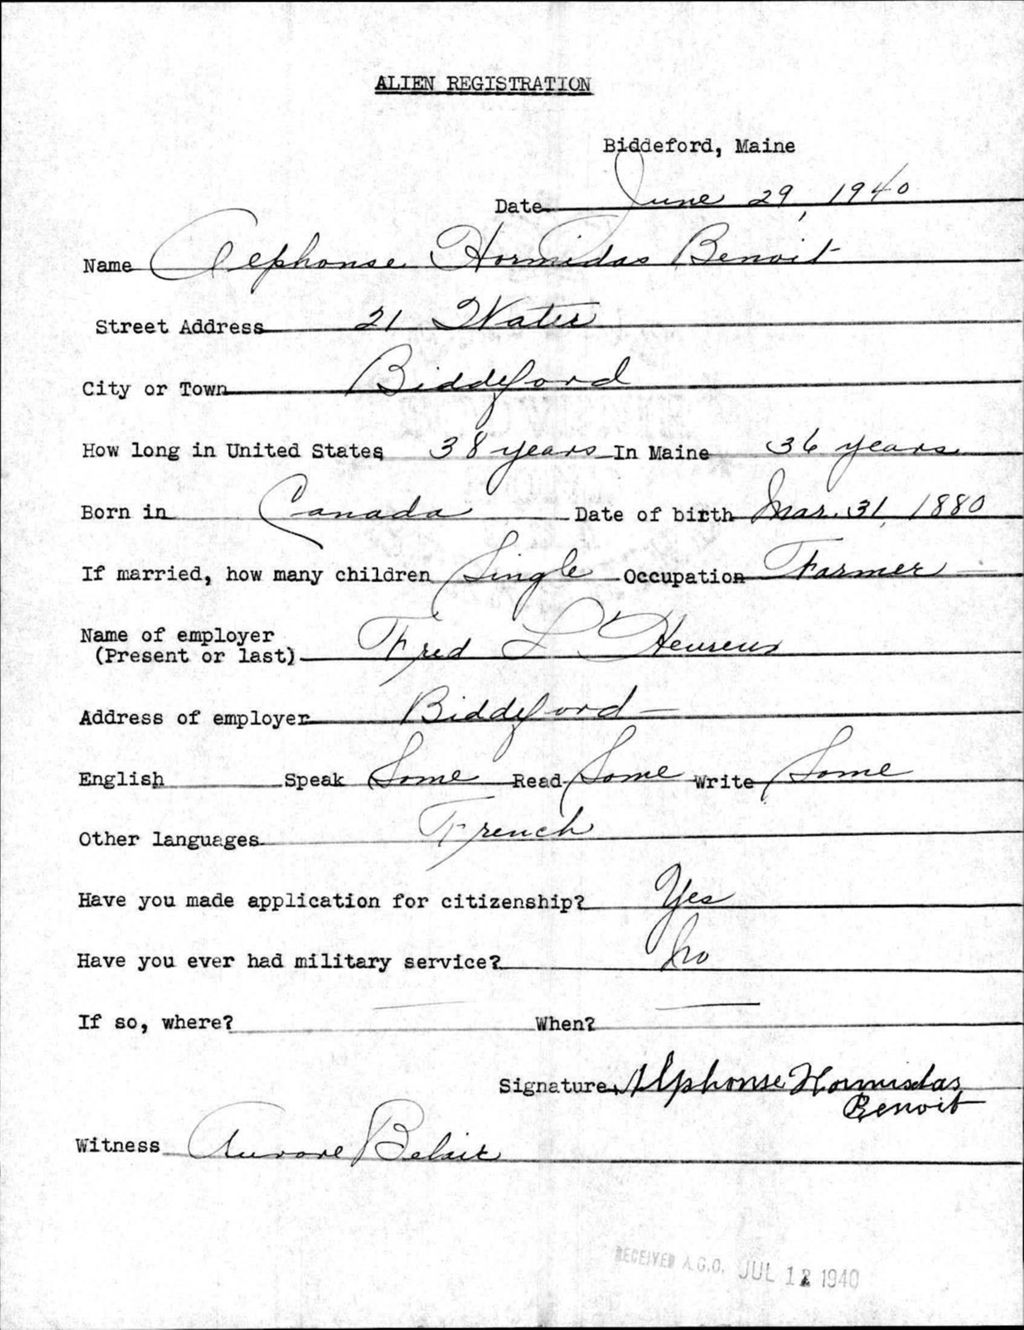 ALIEN REGISTRATION
Biddeford, Maine
Date June 29, 1940
Name Alphonse Hormidas Benoit
Street Address 21 Water
City or Town Biddeford
How long in United States 38 years In Maine 36 years
Born in Canada Date of birth Mar. 31, 1880
If married, how many children Single Occupation Farmer
Name of employer
(Present or last) Fred L'Heureux
Address of employer Biddeford
English Speak Some Read Some Write Some
Other languages French
Have you made application for citizenship? Yes
Have you ever had military service? No
If so, where? When?
Signature Alphonse Hormisdas
Benoit
Witness Aurore Belair
RECEIVED A.G.O. JUL 12 1940